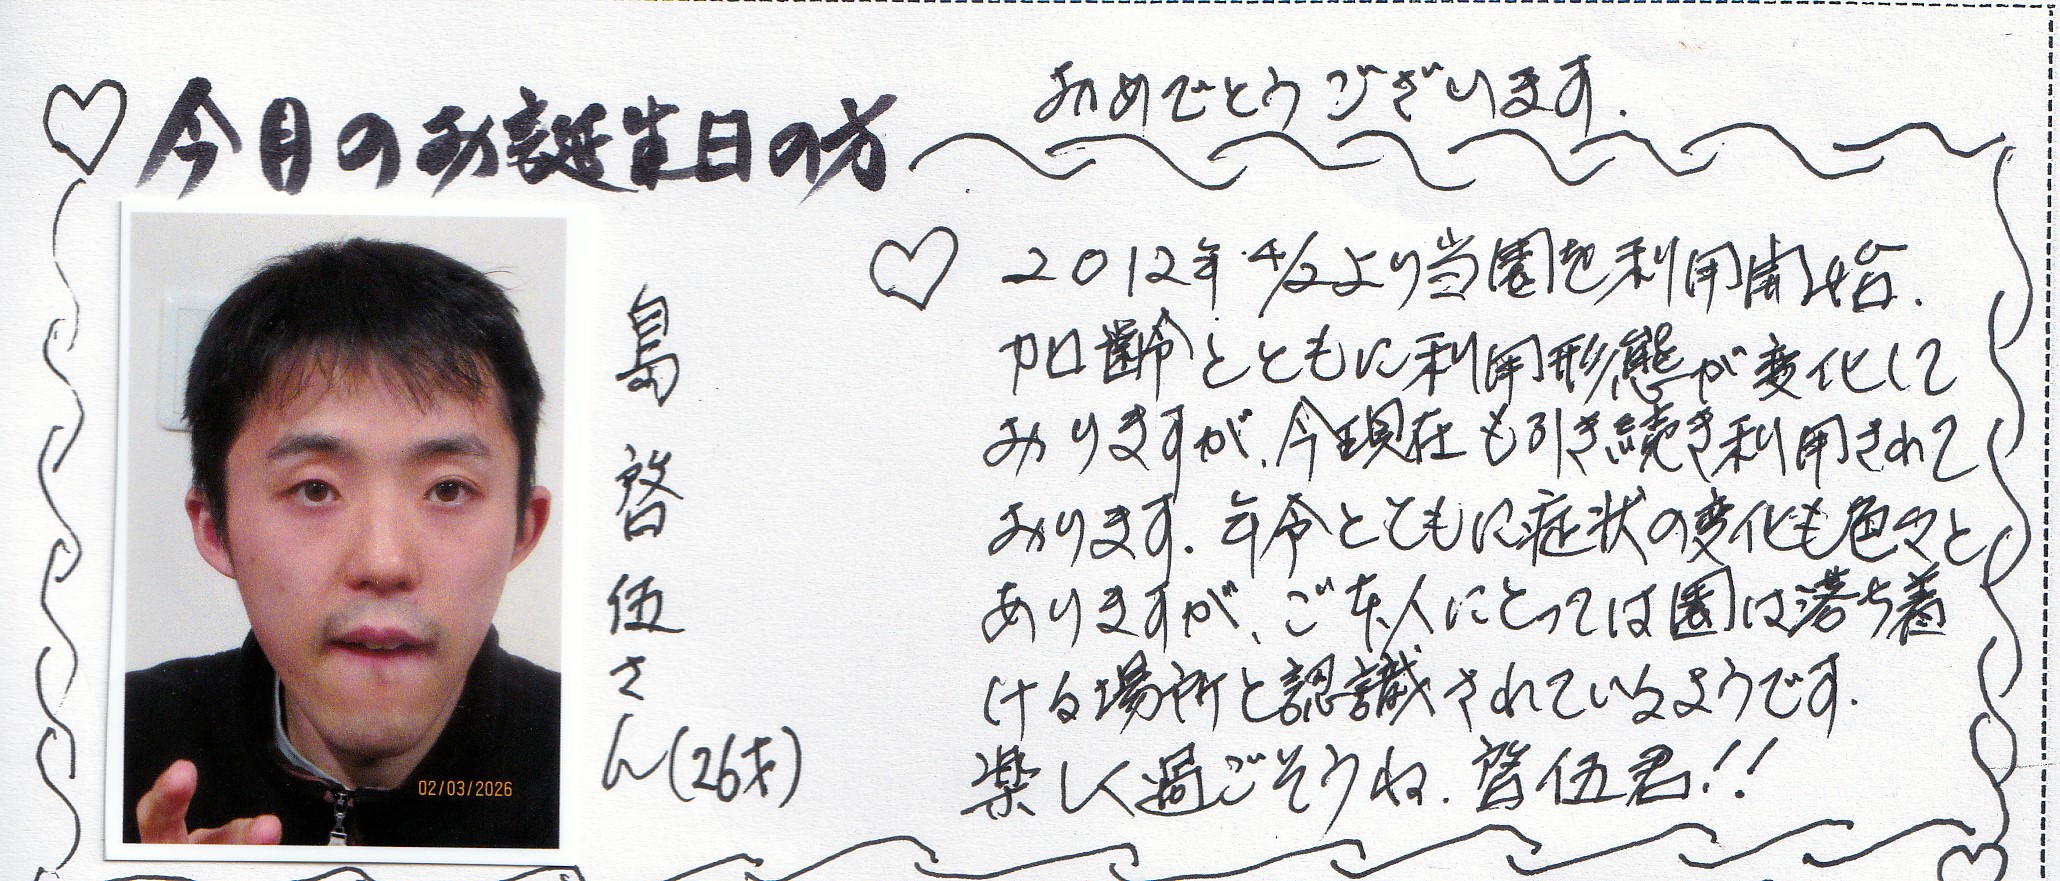 今月のお誕生日の方
おめでとうございます.
島啓伍さん(26才)
2012年4/2より当園を利用開始.
加齢とともに利用形態が変化して
おりますが、今現在も引き続き利用されて
おります. 年令とともに症状の変化も色々と
ありますが、ご本人にとっては園は落ち着
ける場所と認識されているようです.
楽しく過ごそうね. 啓伍君!!
02/03/2026